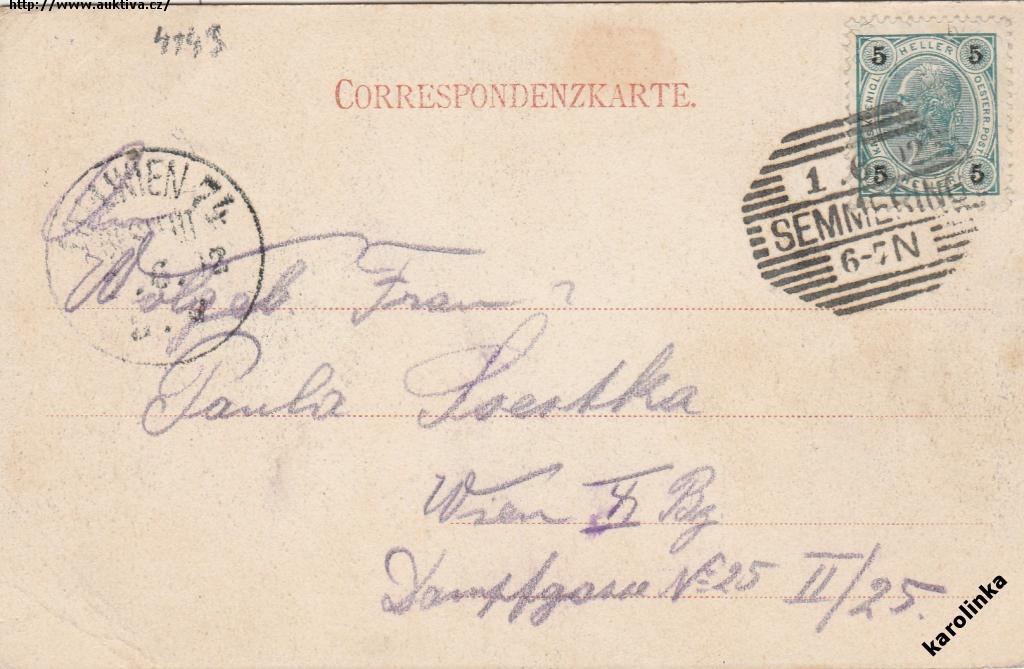 http://www.auktiva.cz/
4145
CORRESPONDENZKARTE.
5 HELLER 5
OESTERR. POST.
5 5
1
SEMMERING
6-7N
WIEN 74
An
Wolgeb. Frau
Paula
Wien X Bg
Dampfgasse No 25 II/25.
karolinka